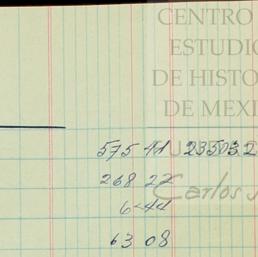 CENTRO
ESTUDIO
DE HISTO
DE MEXI
575 41 23503.2
268 27
6 44
Carlos
63 08